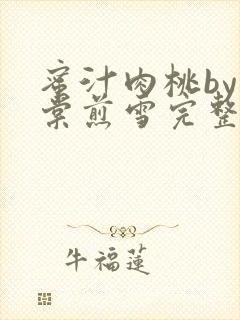 蜜汁肉桃by
棠煎雪完整
牛福莲